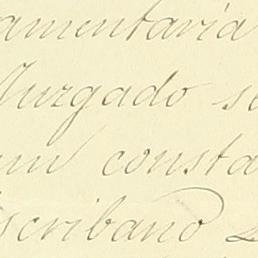 amentaria
Juzgado se
um consta
scribano